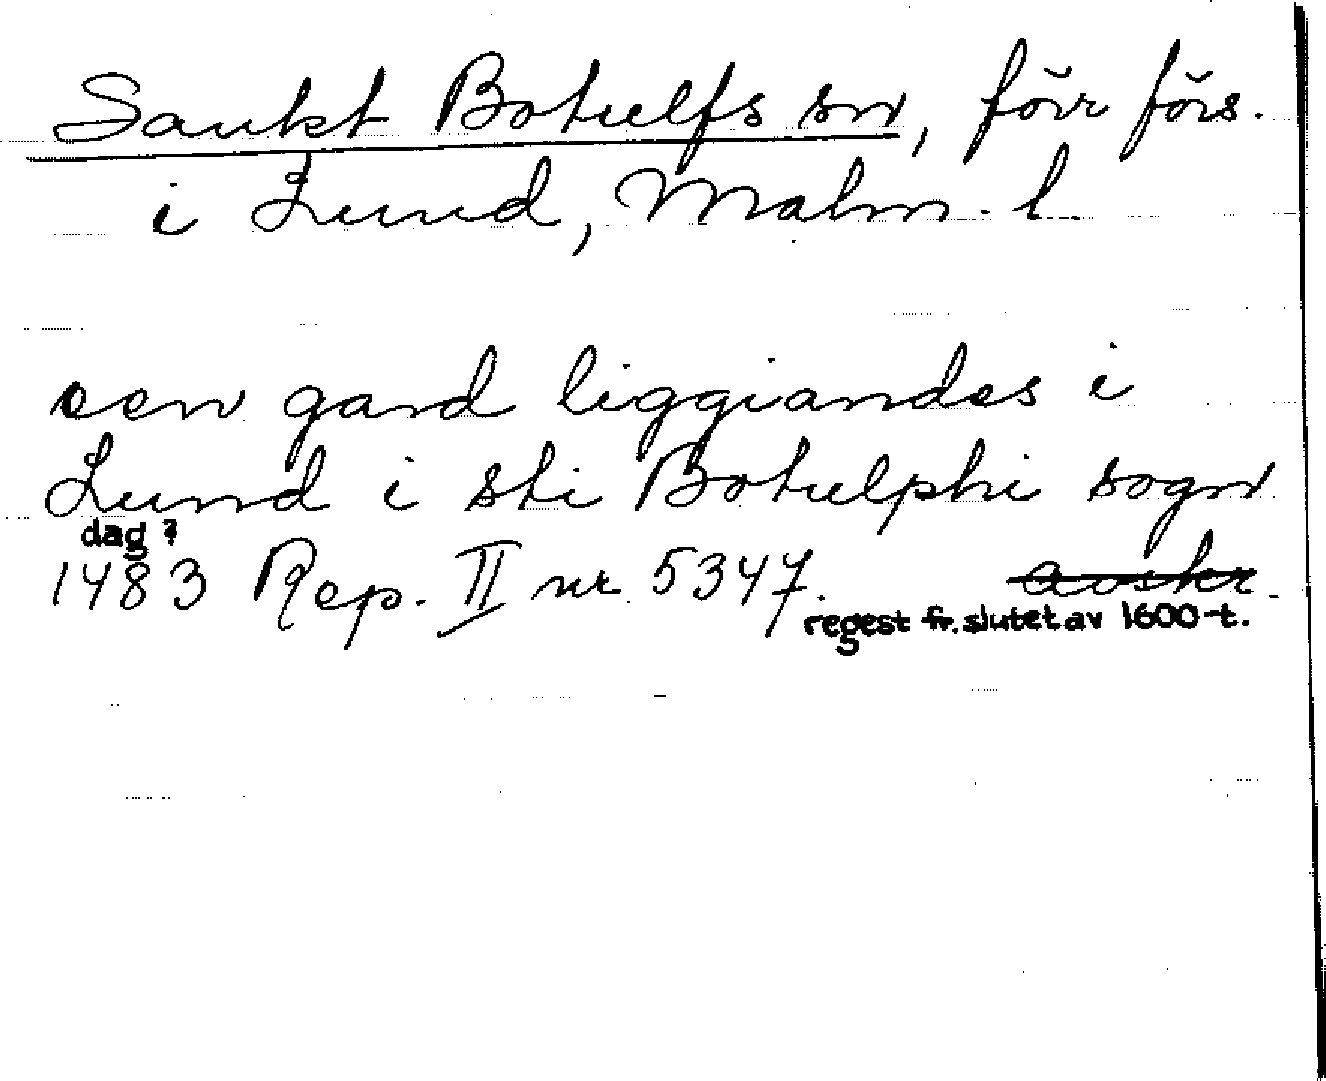 Sankt Botulfs sn, förr förs.
i Lund, Malm. l.
een gard liggiandes i
Lund i sti Botulphi sogn
dag?
1483 Rep. II nr 5347. avskr.
regest fr. slutet av 1600-t.